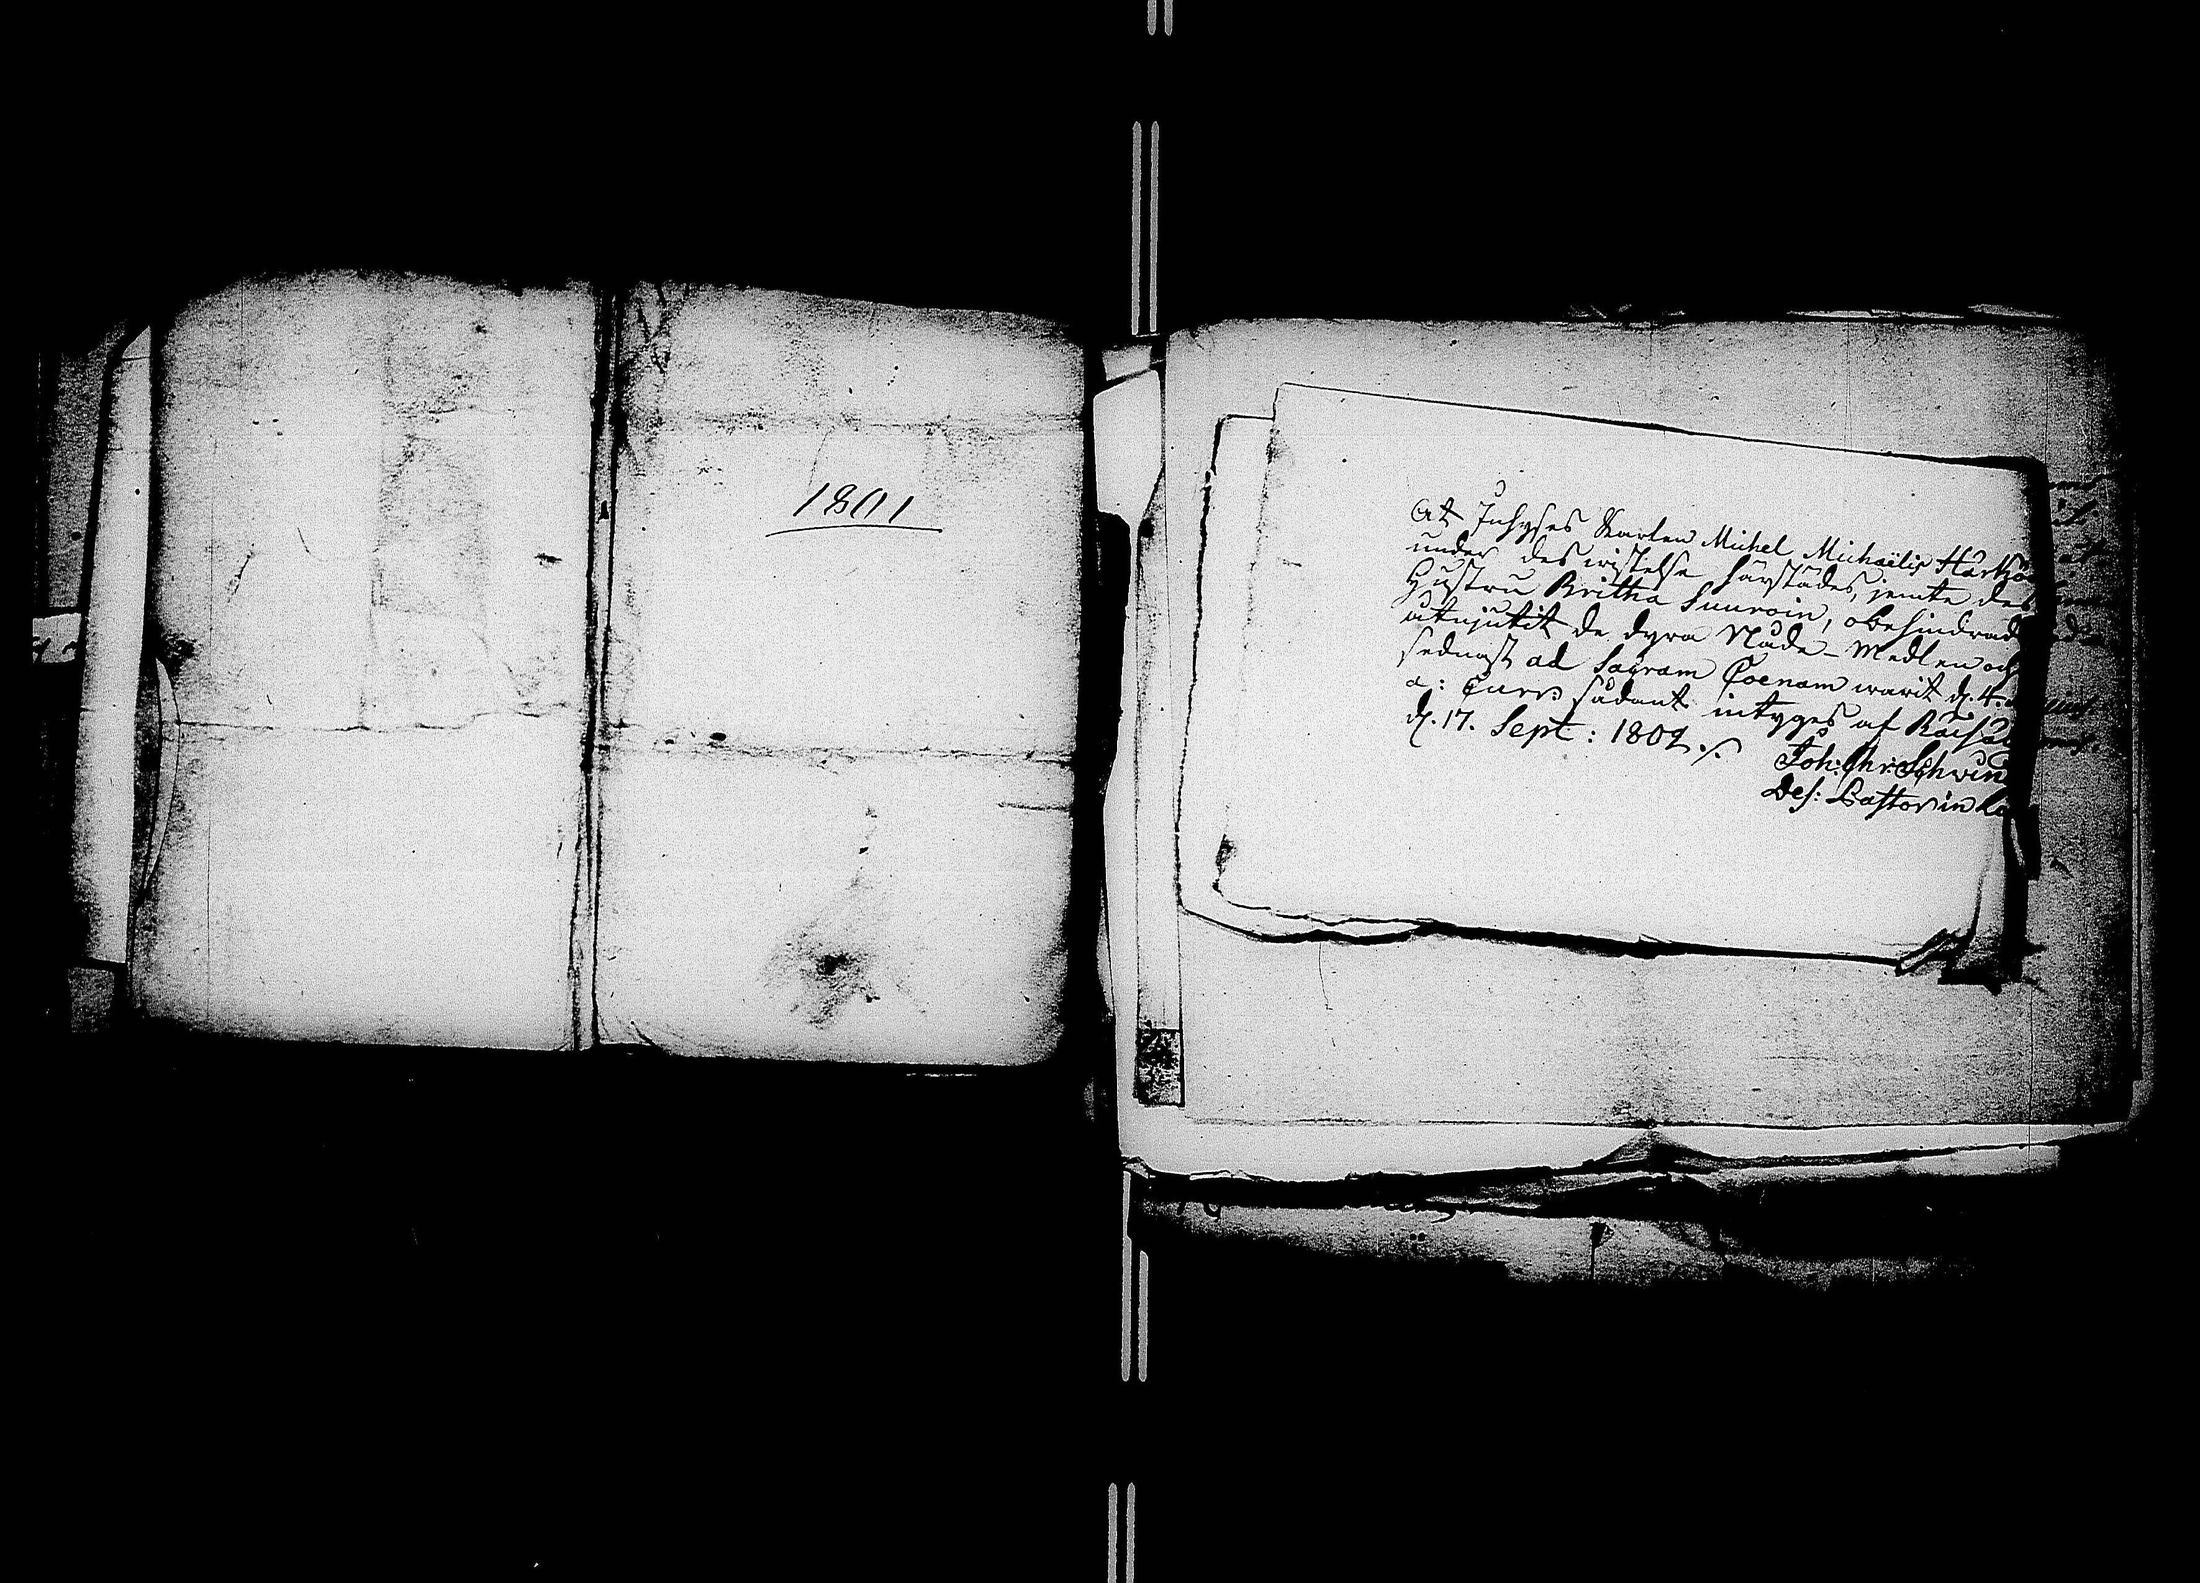 1801
At Inhyses Karlen Michel Michaëlis Härkö
under des wistelse härstädes, jemte des
Hustru Britha Suuroin, obehindrad
utnjutit de dyra Nåde-Medlen och
sednast ad Sacram Coenam warit d. 4.
a: Curr: sådant intyges af
d. 17. Sept: 1802 ./.
Joh: Chr: Schwin
Des: Pastor in